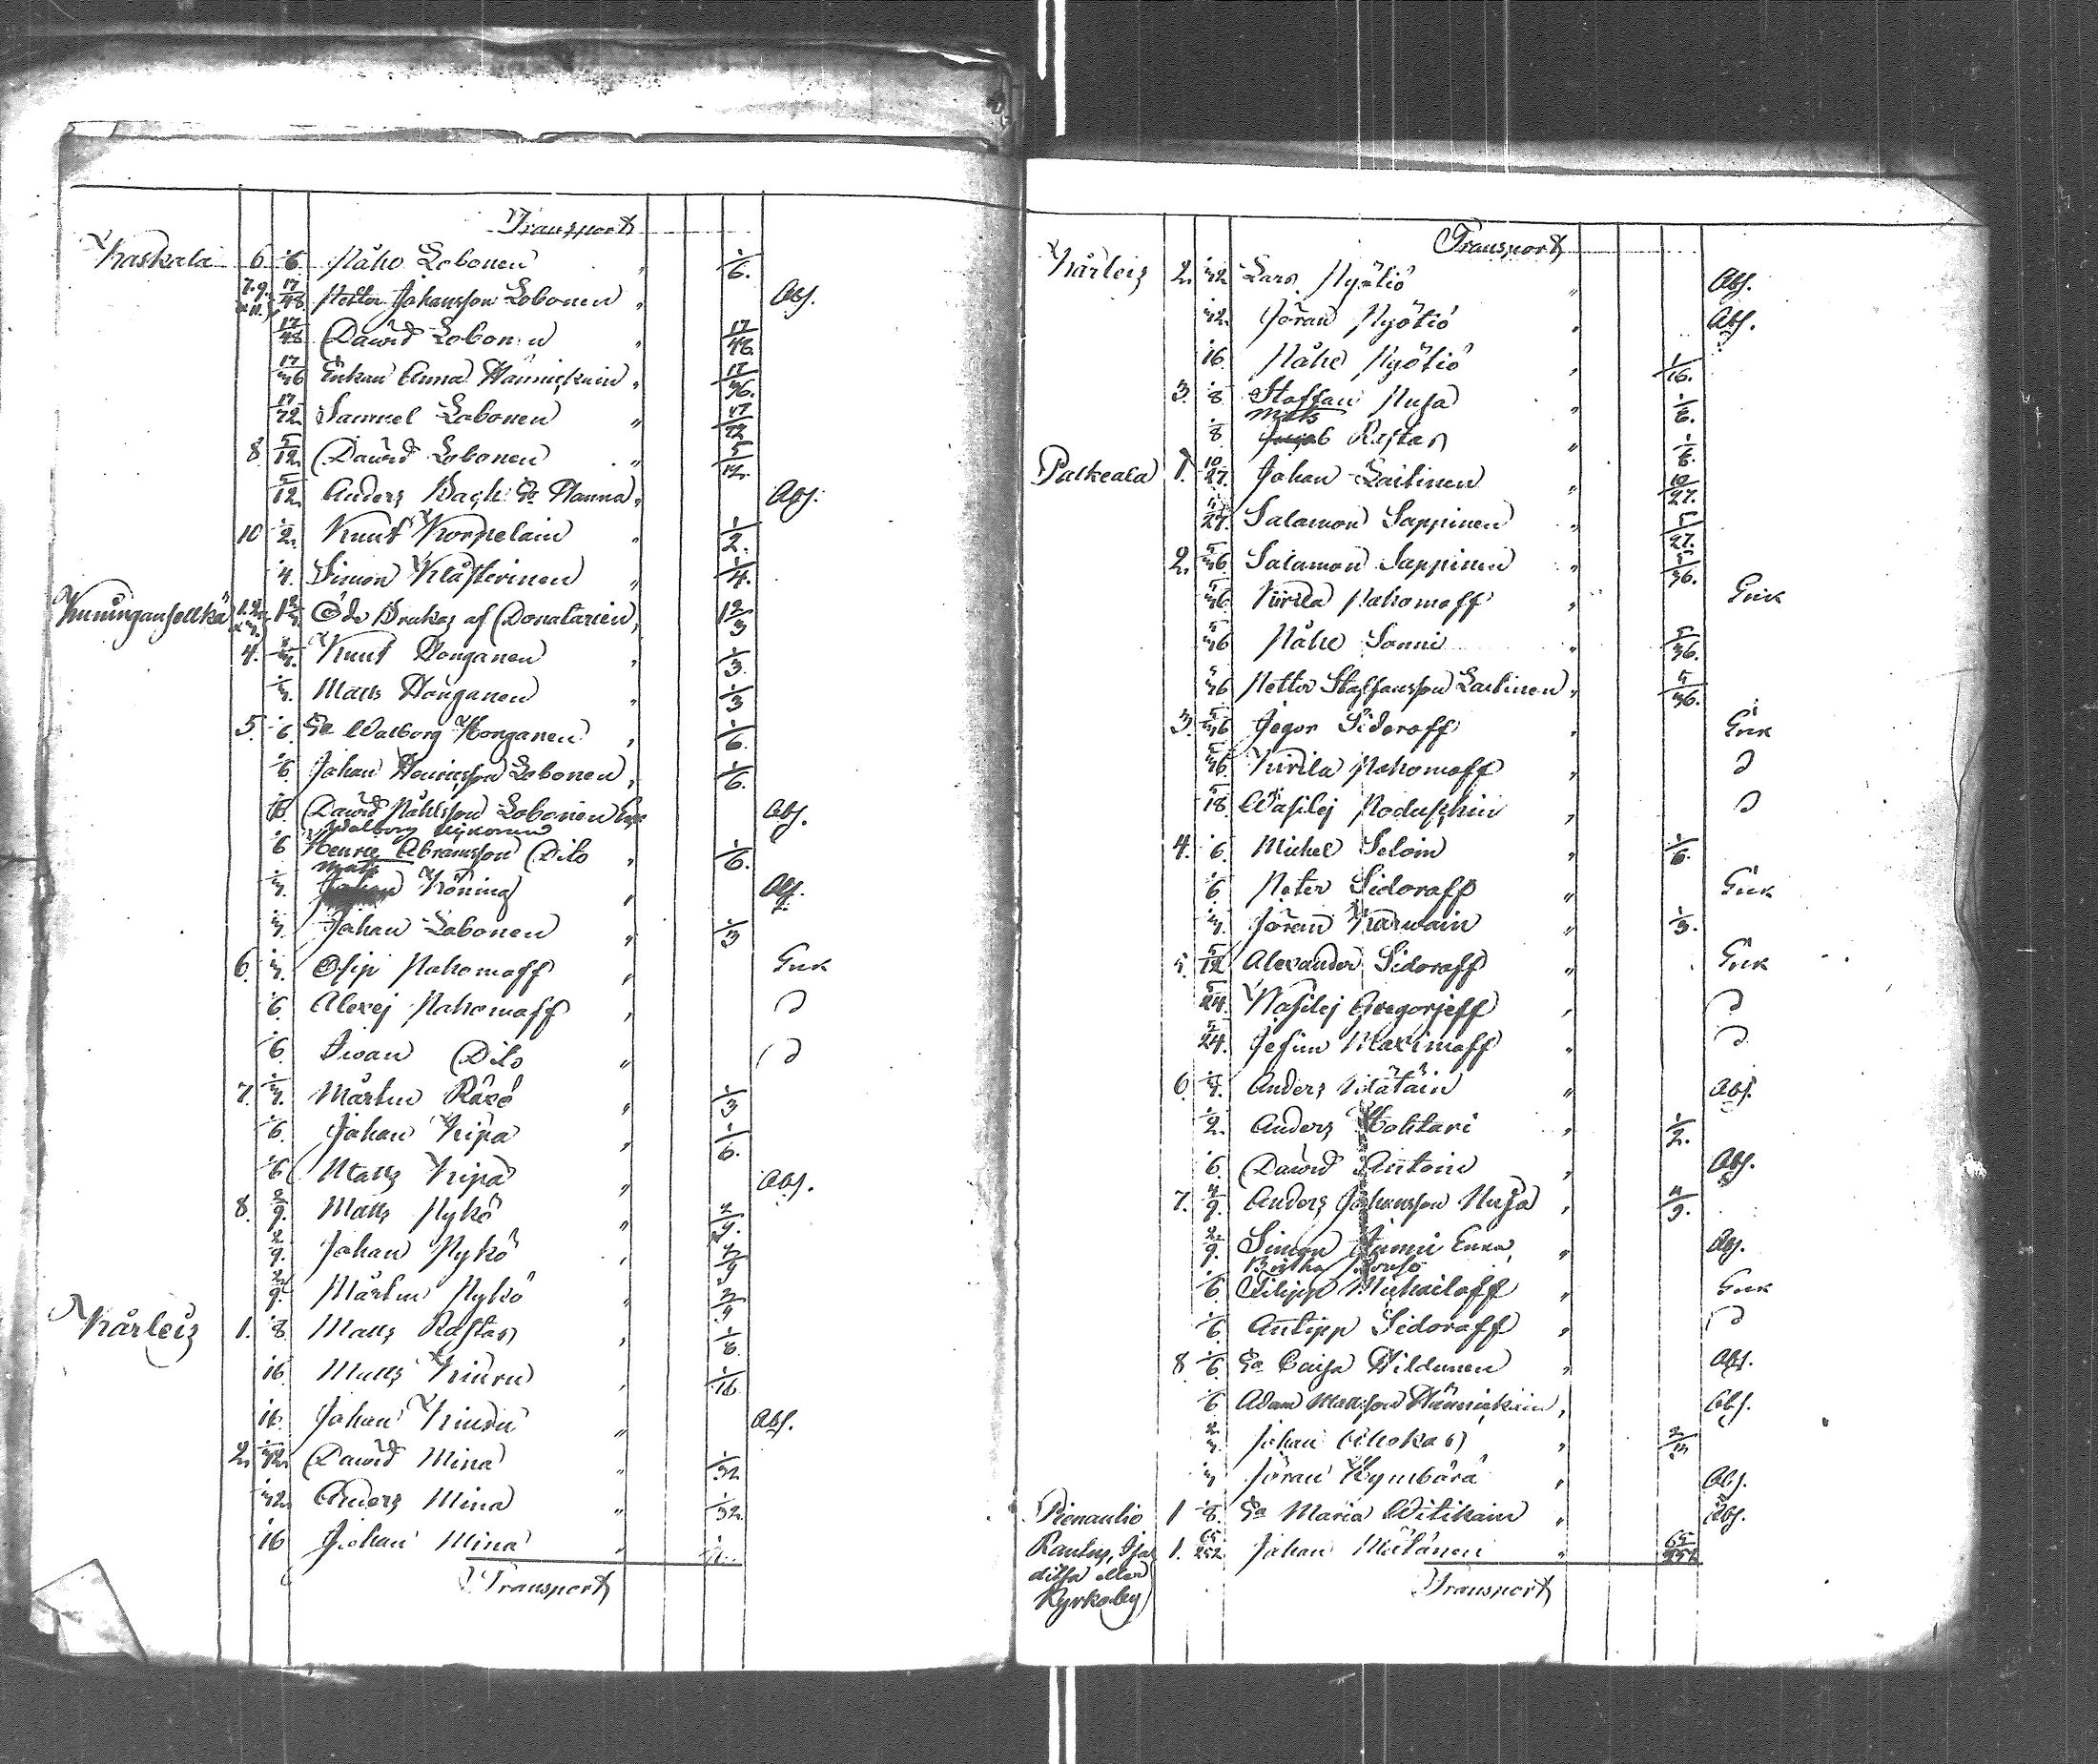 Transport
Kaskala 6 1/6 Påhe Lobonen " 1/6.
7.9. & 11. 17/48 Petter Johansson Lobonen " Abs.
17/48 Dawid Lobonen " 17/48.
17/36 Enkan Anna Hännickain " 17/36.
17/72 Samuel Lobonen " 17/72
8. 5/12 Dawid Lobonen " 5/12.
5/12 Anders Hanna " Abs.
10 1/2. Knut Korpelain " 1/2.
1/4. Simon Klåsterinen " 1/4.
Kuninganselkä 1.2. & 3. 1 2/3 Öde Brukas af Donatarien 1 2/3
4. 1/3. Knut Honganen " 1/3.
1/3. Matts Honganen " 1/3
5. 1/6. Ea Walborg Honganen " 1/6.
1/6. Johan Henricsson Lobonen " 1/6.
1/6. Dawid Påhlsson Lobonen Abs.
Walborg Nykonen
1/6 Henric Abramsson Dito " 1/6.
Matts
1/3. Köning " Abs.
1/3. Johan Lobonen " 1/3
6. 1/3. Osip Pahomoff " Grek
1/6. Alexej Pahomoff " D
1/6. Iwan Dito " D
7. 1/3. Mårten Räxö " 1/3
1/6. Johan Kipa " 1/6.
1/6 Matts Kipa " Abs.
8. 2/9. Matts Pykö " 2/9.
2/9. Johan Pykö " 2/9
2/9. Mårten Pykö " 2/9
Kårleis 1. 1/8. Matts Rastas " 1/8.
1/16. Matts Kiuru " 1/16.
1/16. Johan Kiuru " Abs.
2. 1/32. Dawid Mina " 1/32
1/32. Anders Mina " 1/32.
1/16 Johan Mina "
Transport
Transport
Kårleis 2. 1/32 Lars Pyötiö " Abs.
1/32. Jöran Pyötiö " Abs.
1/16. Påhe Pyötiö " 1/16.
3. 1/8. Staffan Musa " 1/8.
Matts
1/8. Rastas " 1/8.
Palkeala 1. 10/27. Johan Laitinen " 10/27.
5/27. Salamon Sappinen " 5/27.
2. 5/36 Salamon Sappinen " 5/36.
5/36 Kirila Pahomoff " Grek
5/36 Påhe Sonni " 5/36.
5/36 Petter Staffansson Laitinen " 5/36.
3. 5/36 Jegor Sidoroff " Grek
5/36 Kirila Pahomoff " D
5/18. Wasilej Poduschin " D
4. 1/6. Michel Seloin " 1/6.
1/6 Peter Sidoroff " Grek
1/3. Jöran Karwain " 1/3.
5. 5/12 Alexander Sidoroff " Grek
5/24. Wasilej Gregorjeff " D
5/24. Jefim Maximoff " D
6. 1/3. Anders " Abs.
1/2. Anders " 1/2.
1/6. Dawid Antoin " Abs.
7. 4/9. Anders Johansson Musa " 4/9.
2/9. Simon Enka " Abs.
1/6. Filipp Michailoff " Grek
1/6 Antipp Sidoroff " D
8 1/6. Ea Caisa Hildunen " Abs.
1/6 Adam Mattsson Hännickain " Abs.
2/3. Johan " 2/3
1/3 Jöran " Abs.
Pienautio 1 1/8. Ea Maria Witikain " Abs.
Rautus, 1. 65/252. Johan " 65/252
eller
Kyrkoby
Transport